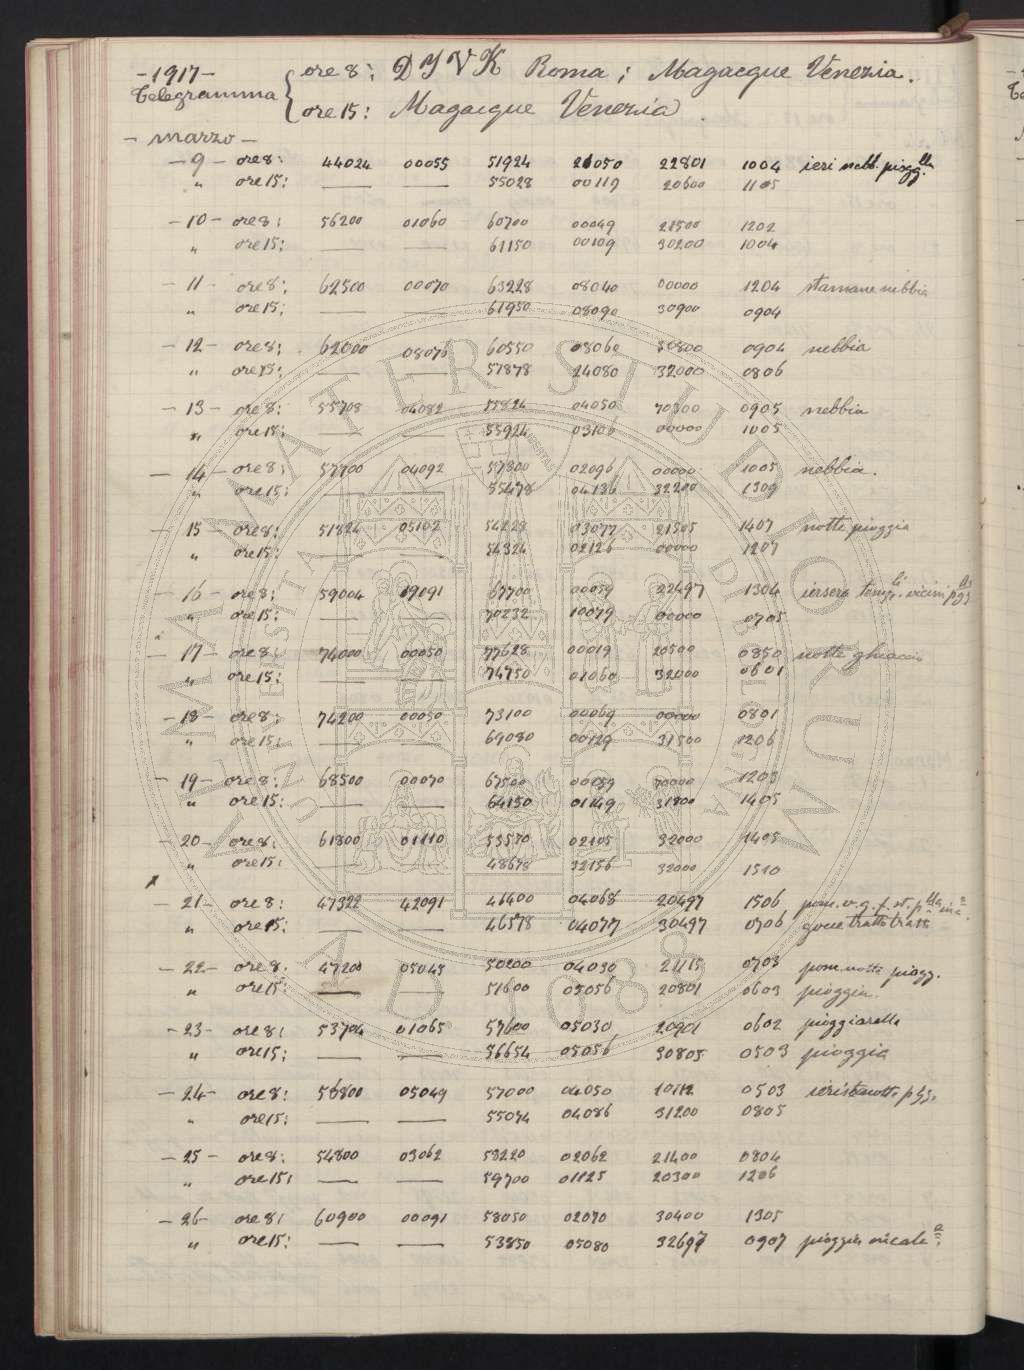 -1917- ore 8: D Y V K Roma; Magacque Venezia.
Telegramma
ore 15: Magacque Venezia.
- marzo -
- 9 - ore 8: 44024 00055 51924 21050 22801 1004 ieri nebb. piogg.lla
" ore 15: — — 55028 00119 20600 1105
- 10 - ore 8: 56200 01060 60700 00049 21500 1202
" ore 15: — — 61150 00109 30200 1004
- 11 - ore 8: 62500 00070 63228 08040 00000 1204 stamane nebbia
" ore 15: — — 61950 08090 30900 0904
- 12 - ore 8: 62000 08076 60550 08060 30800 0904 nebbia
" ore 15: — — 57878 24080 32000 0806
- 13 - ore 8: 55708 04082 55824 04050 70300 0905 nebbia
" ore 15: — — 55924 03106 00000 1005
- 14 - ore 8: 57700 04092 57800 02096 00000 1005 nebbia.
" ore 15: — — 55478 04136 32200 1309
- 15 - ore 8: 51824 05102 54228 03077 21505 1407 notte pioggia
" ore 15: — — 54324 02126 00000 1207
- 16 - ore 8: 59004 09091 67700 00059 22497 1304 iersera
" ore 15: — — 70232 10079 00000 0705
- 17 - ore 8: 74000 00050 77628 00019 20500 0850 notte ghiaccio
" ore 15: — — 74750 01060 32000 0601
- 18 - ore 8: 74200 00050 73100 00069 00000 0801
" ore 15: — — 69080 00129 31500 1206
- 19 - ore 8: 68500 00070 67500 00059 70000 1203
" ore 15: — — 64150 01149 31800 1405
- 20 - ore 8: 61800 01110 53570 02105 32000 1405
" ore 15: — — 48678 32156 32000 1510
- 21 - ore 8: 47322 42091 46400 04068 20497 1506
" ore 15: — — 46578 04077 30497 0706 gocce tratto tratto
- 22 - ore 8: 47200 05043 50200 04030 21115 0703 pom. notte piogg.
" ore 15: — — 51600 05056 20801 0603 pioggia.
- 23 - ore 8: 53704 01065 57600 05030 20901 0602 pioggiarella
" ore 15: — — 56654 05056 30805 0503 pioggia
- 24 - ore 8: 56800 05049 57000 04050 10112 0503
" ore 15: — — 55074 04086 31200 0805
- 25 - ore 8: 54800 03062 58220 02062 21400 0804
" ore 15: — — 59700 01125 20300 1206
- 26 - ore 8: 60900 00091 58050 02070 30400 1305
" ore 15: — — 53850 05080 32697 0907 pioggia
ALMA MATER STUDIORUM
UNIVERSITÀ DI BOLOGNA
A.D. 1088